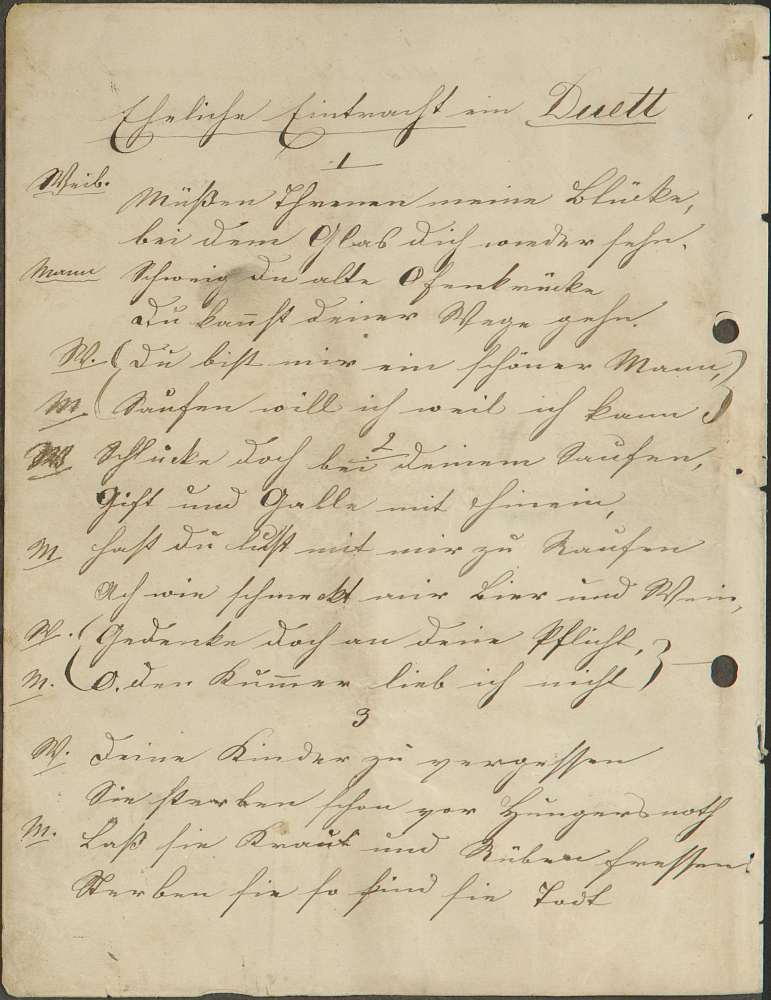 Eheliche Eintracht ein Duett
1
Weib. Müßen Threnen meine Blücke,
bei dem Glas dich wieder sehn.
Mann Schweig du alte Ofenkrücke
du kannst deiner Wege gehn.
W. (Du bist mir ein schöner Mann,)
M (Saufen will ich weil ich kann)
2
W Schlücke doch bei deinem Saufen,
Gift und Galle mit hinein,
M hast du lust mit mir zu Raufen
Ach wie schmeckt mir Bier und Wein,
W. (Gedenke doch an deine Pflicht,)
M. (O. den Kum̄er lieb ich nicht)
3
W. deine Kinder zu vergessen
Sie sterben schon vor Hungersnoth
M. Laß sie Kraut und Rüben fressen!
Sterben sie so sind sie Todt